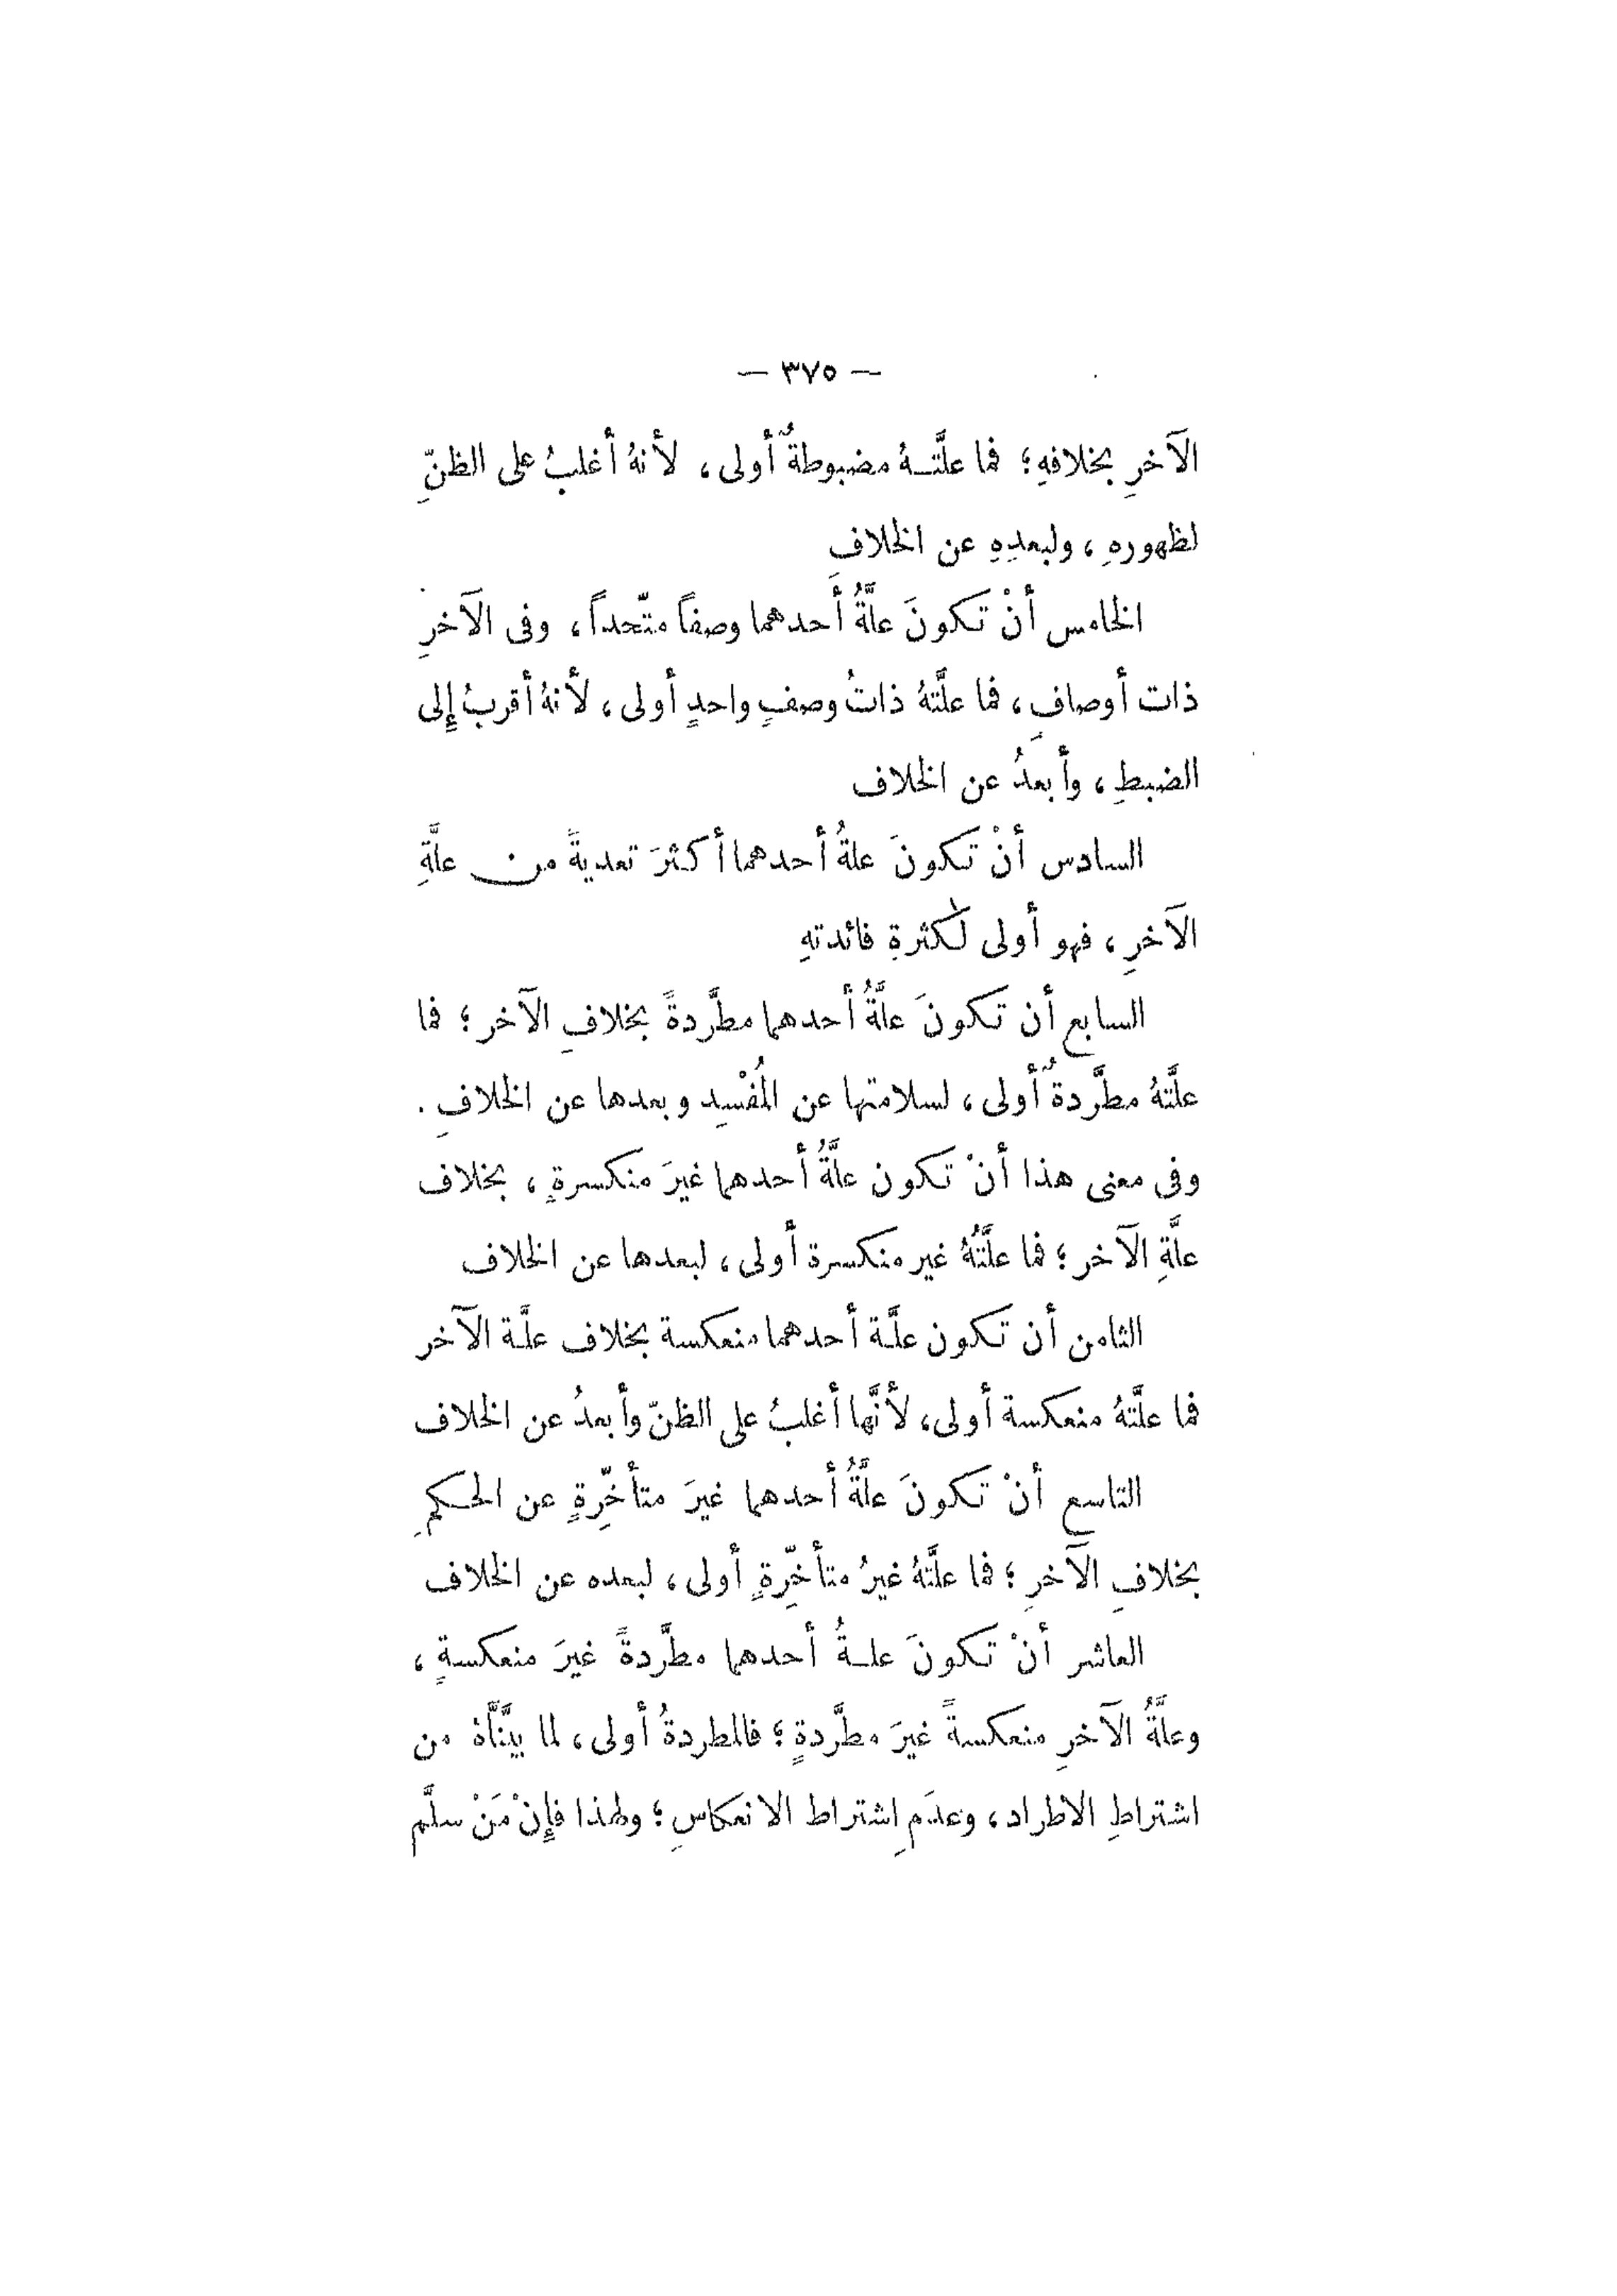 — ٣٧٥ —
الآخرِ بخلافهِ؛ فما علَّتـهُ مضبوطةٌ أولى، لأنهُ أغلبُ على الظنّ
لظهورهِ، ولبعدِهِ عن الخلافِ
الخامس أنْ تكونَ علَّةُ أَحدهما وصفاً متّحداً، وفى الآخرِ
ذات أوصافٍ، فما علَّتهُ ذاتُ وصفٍ واحدٍ أولى، لأنهُ أقربُ إلى
الضبطِ، وأبعدُ عن الخلاف
السادس أنْ تكونَ علةُ أحدهما أكثرَ تعديةً من علَّةِ
الآخرِ، فهو أولى لكثرةِ فائدتهِ
السابع أن تكونَ علَّةُ أحدهما مطَّردةً بخلافِ الآخر؛ فما
علَّتهُ مطَّردةٌ أولى، لسلامتها عن المُفْسِد وبعدها عن الخلافِ.
وفى معنى هذا أنْ تكون علَّةُ أحدهما غيرَ منكسرةٍ، بخلاف
علَّةِ الآخر؛ فما علَّتُهُ غير منكسرة أولى، لبعدها عن الخلاف
الثامن أن تكون علَّة أحدهما منعكسة بخلاف علَّة الآخر
فما علَّتهُ منعكسة أولى، لأنَّها أغلبُ على الظنّ وأبعدُ عن الخلاف
التاسع أنْ تكونَ علَّةُ أحدهما غيرَ متأخِّرةٍ عن الحكمِ
بخلافِ الآخرِ؛ فما علَّتهُ غيرُ متأخِّرةٍ أولى، لبعده عن الخلاف
العاشر أنْ تكونَ علـةُ أحدهما مطَّردةً غيرَ منعكسةٍ،
وعلَّةُ الآخرِ منعكسةً غيرَ مطَّردةٍ؛ فالمطردةُ أولى، لما بيَّنَّاهُ من
اشتراطِ الاطراد، وعدَمِ اشتراط الانعكاسِ؛ ولهذا فإِنْ مَنْ سلَّم